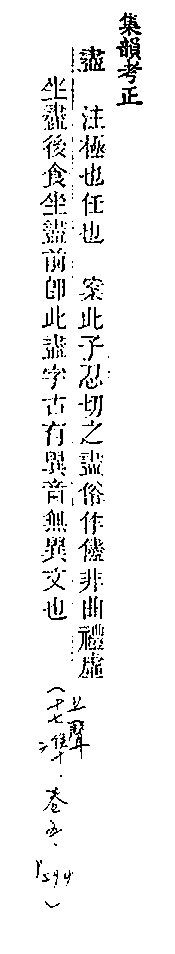 集韻考正
盡　注極也任也　案此子忍切之盡俗作儘非曲禮虛
坐盡後食坐盡前卽此盡字古有異音無異文也
(上聲
十七準.卷五.
P594)